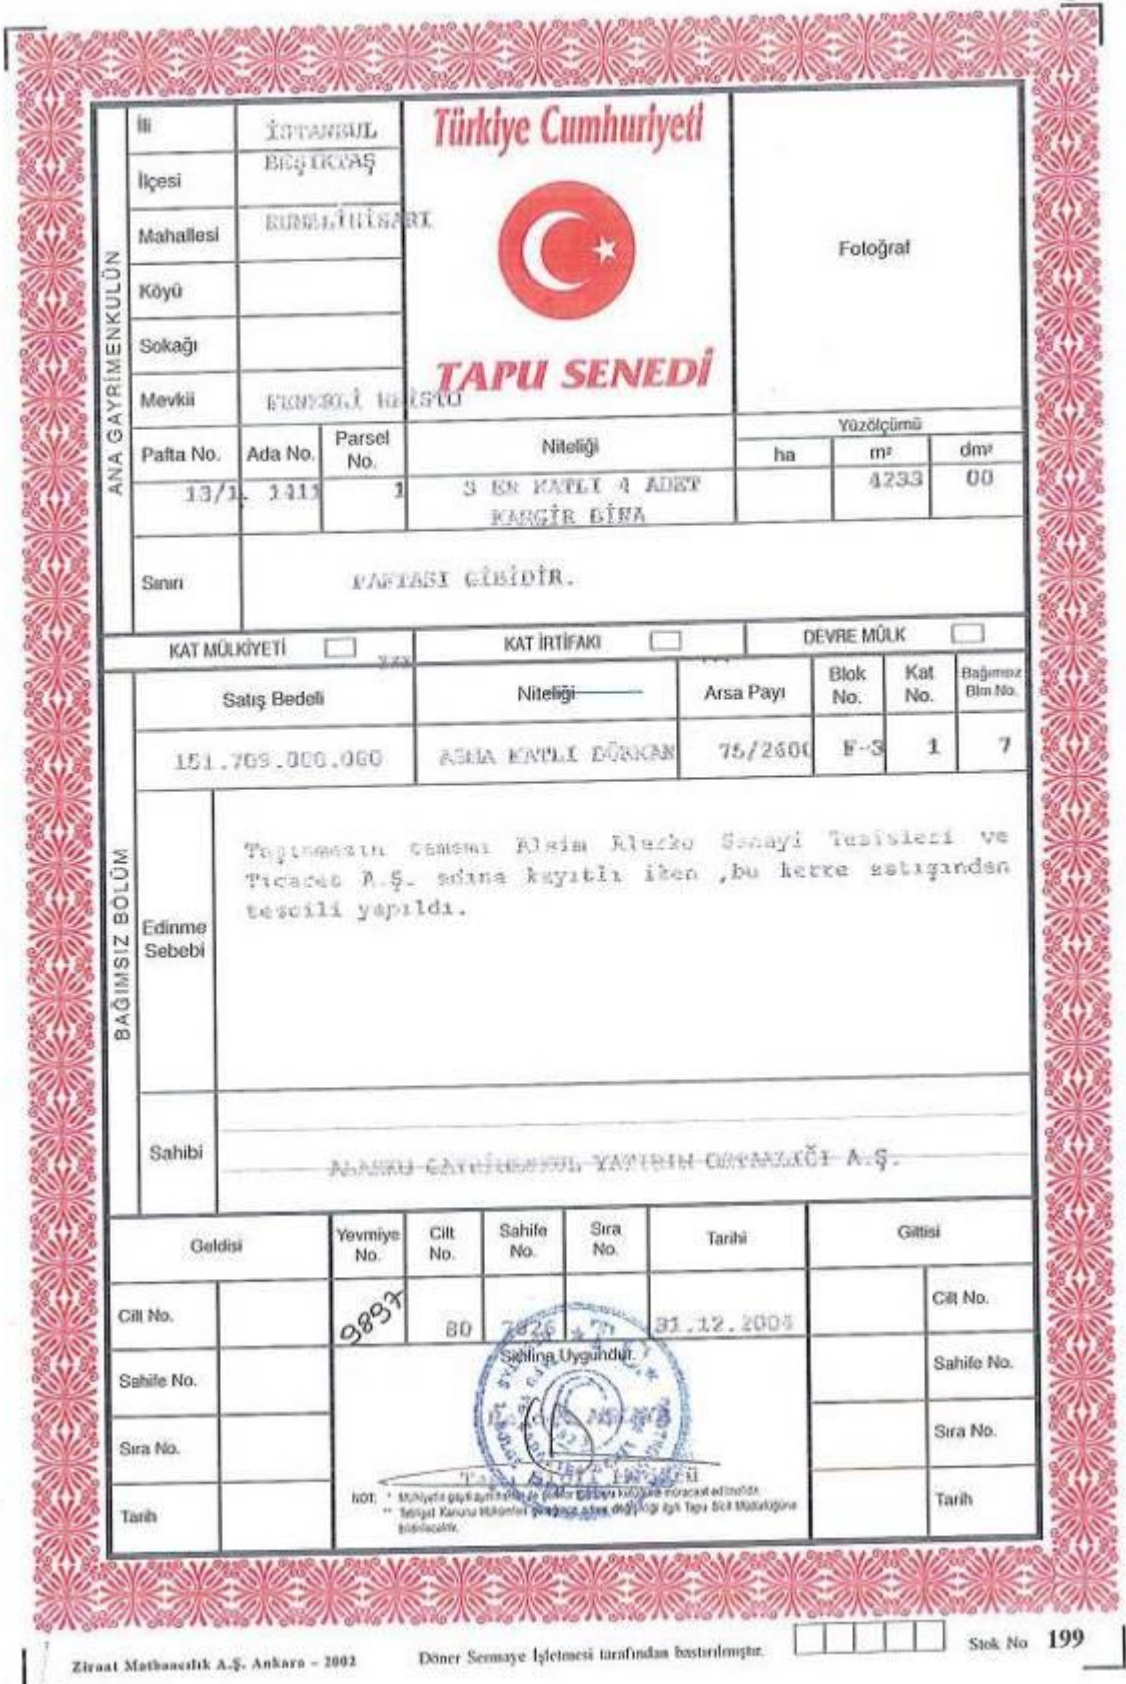 Türkiye Cumhuriyeti
TAPU SENEDİ
Fotoğraf
ANA GAYRİMENKULÜN
İli İSTANBUL
İlçesi BEŞİKTAŞ
Mahallesi RUMELİHİSARI
Köyü
Sokağı
Mevkii
Pafta No. Ada No. Parsel No. Niteliği Yüzölçümü
ha m² dm²
13/1. 1411 1 3 ER KATLI 4 ADET 4233 00
KARGİR BİNA
Sınırı PAFTASI GİBİDİR.
KAT MÜLKİYETİ KAT İRTİFAKI DEVRE MÜLK
BAĞIMSIZ BÖLÜM
Satış Bedeli Niteliği Arsa Payı Blok No. Kat No. Bağımsız Blm No.
151.709.000.000 ASMA KATLI DÜKKAN 75/2600 F-3 1 7
Edinme Sebebi
Taşınmazın tamamı Alsim Alarko Sanayi Tesisleri ve
Ticaret A.Ş. adına kayıtlı iken ,bu kerre satışından
tescili yapıldı.
Sahibi
ALARKO GAYRİMENKUL YATIRIM ORTAKLIĞI A.Ş.
Geldisi Yevmiye No. Cilt No. Sahife No. Sıra No. Tarihi Gittisi
Cilt No. 9897 80 31.12.2004 Cilt No.
Siciline Uygundur.
Sahife No. Sahife No.
Sıra No. Sıra No.
Tarih Tarih
NOT: *
** Tebligat Kanunu
bildirilecektir.
Ziraat Matbaacılık A.Ş. Ankara – 2002 Döner Sermaye İşletmesi tarafından bastırılmıştır. Stok No 199